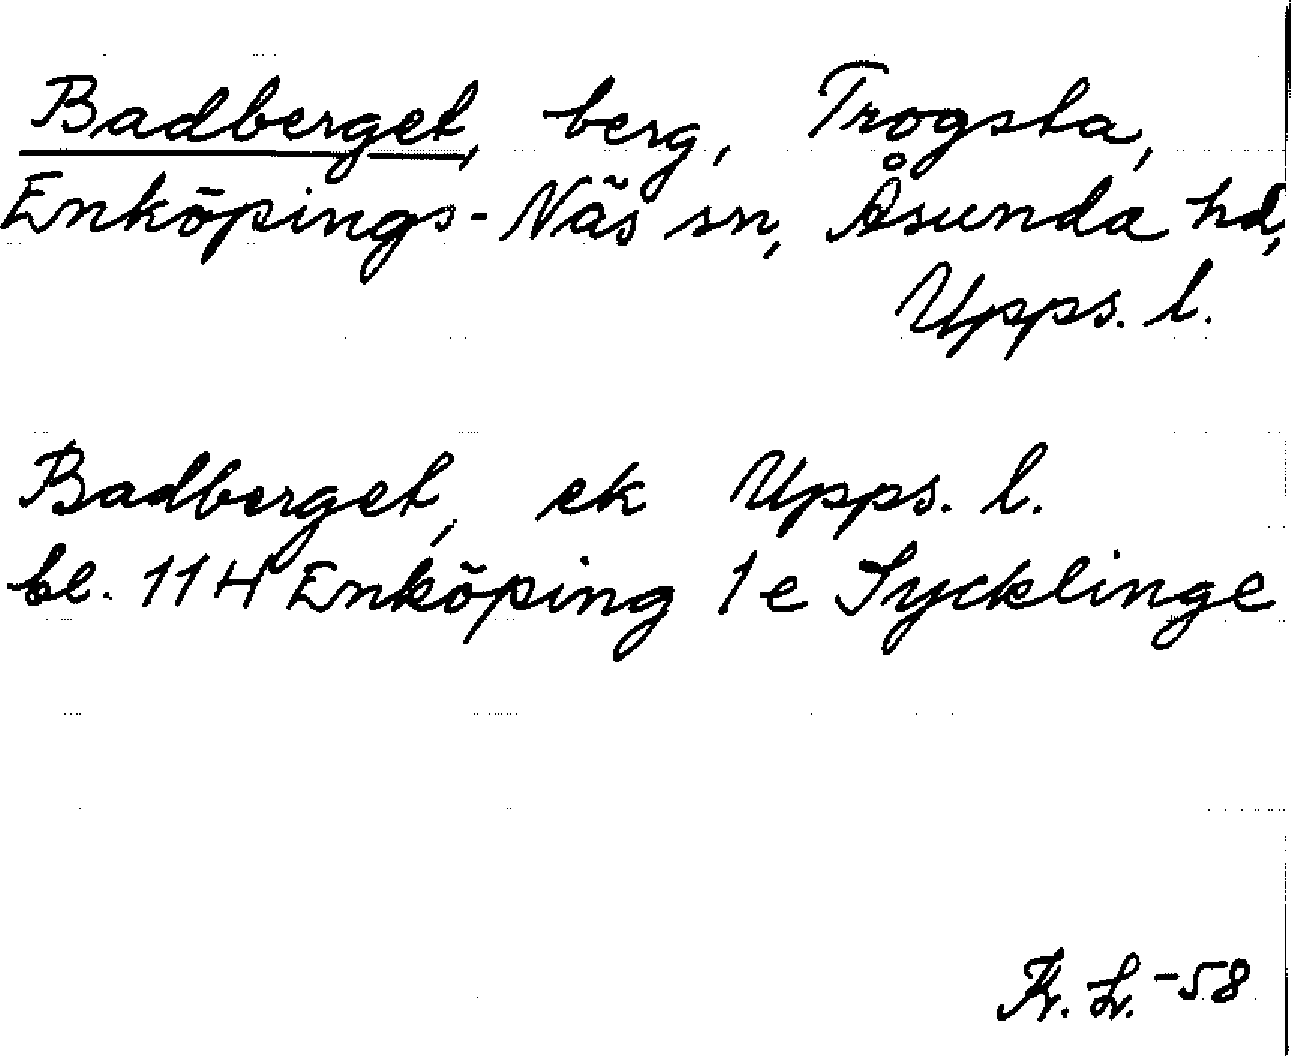 Badberget, berg, Trogsta,
Enköpings-Näs sn, Åsunda hd,
Upps. l.
Badberget, ek Upps. l.
bl. 11H Enköping 1e Sycklinge
-58